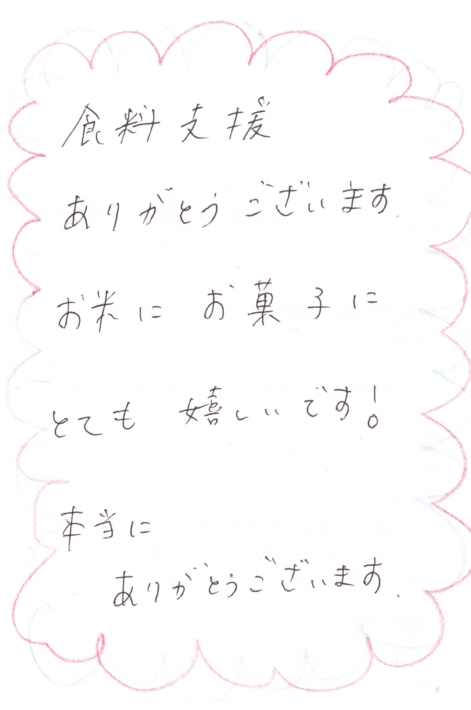 食料支援
ありがとうございます.
お米に お菓子に
とても 嬉しいです!
本当に
ありがとうございます.